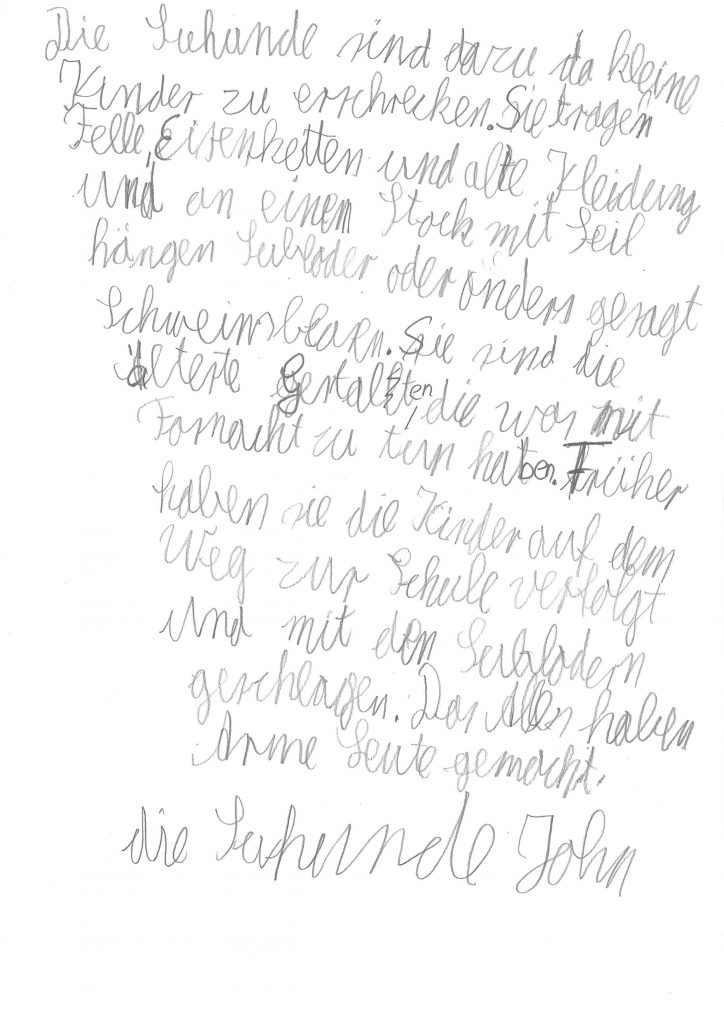 Die Suhunde sind dazu da kleine
Kinder zu erschrecken. Sie tragen
Felle, Eisenketten und alte Kleidung
und an einem Stock mit Seil
hängen Subloder oder anders gesagt
Schweinsblasn. Sie sind die
älteste Gestalten, die was mit
Fasnacht zu tun haben. Früher
haben sie die Kinder auf dem
Weg zur Schule verfolgt
und mit den Sublodern
geschlagen. Das Alles haben
Arme Leute gemacht.
die Suhunde John